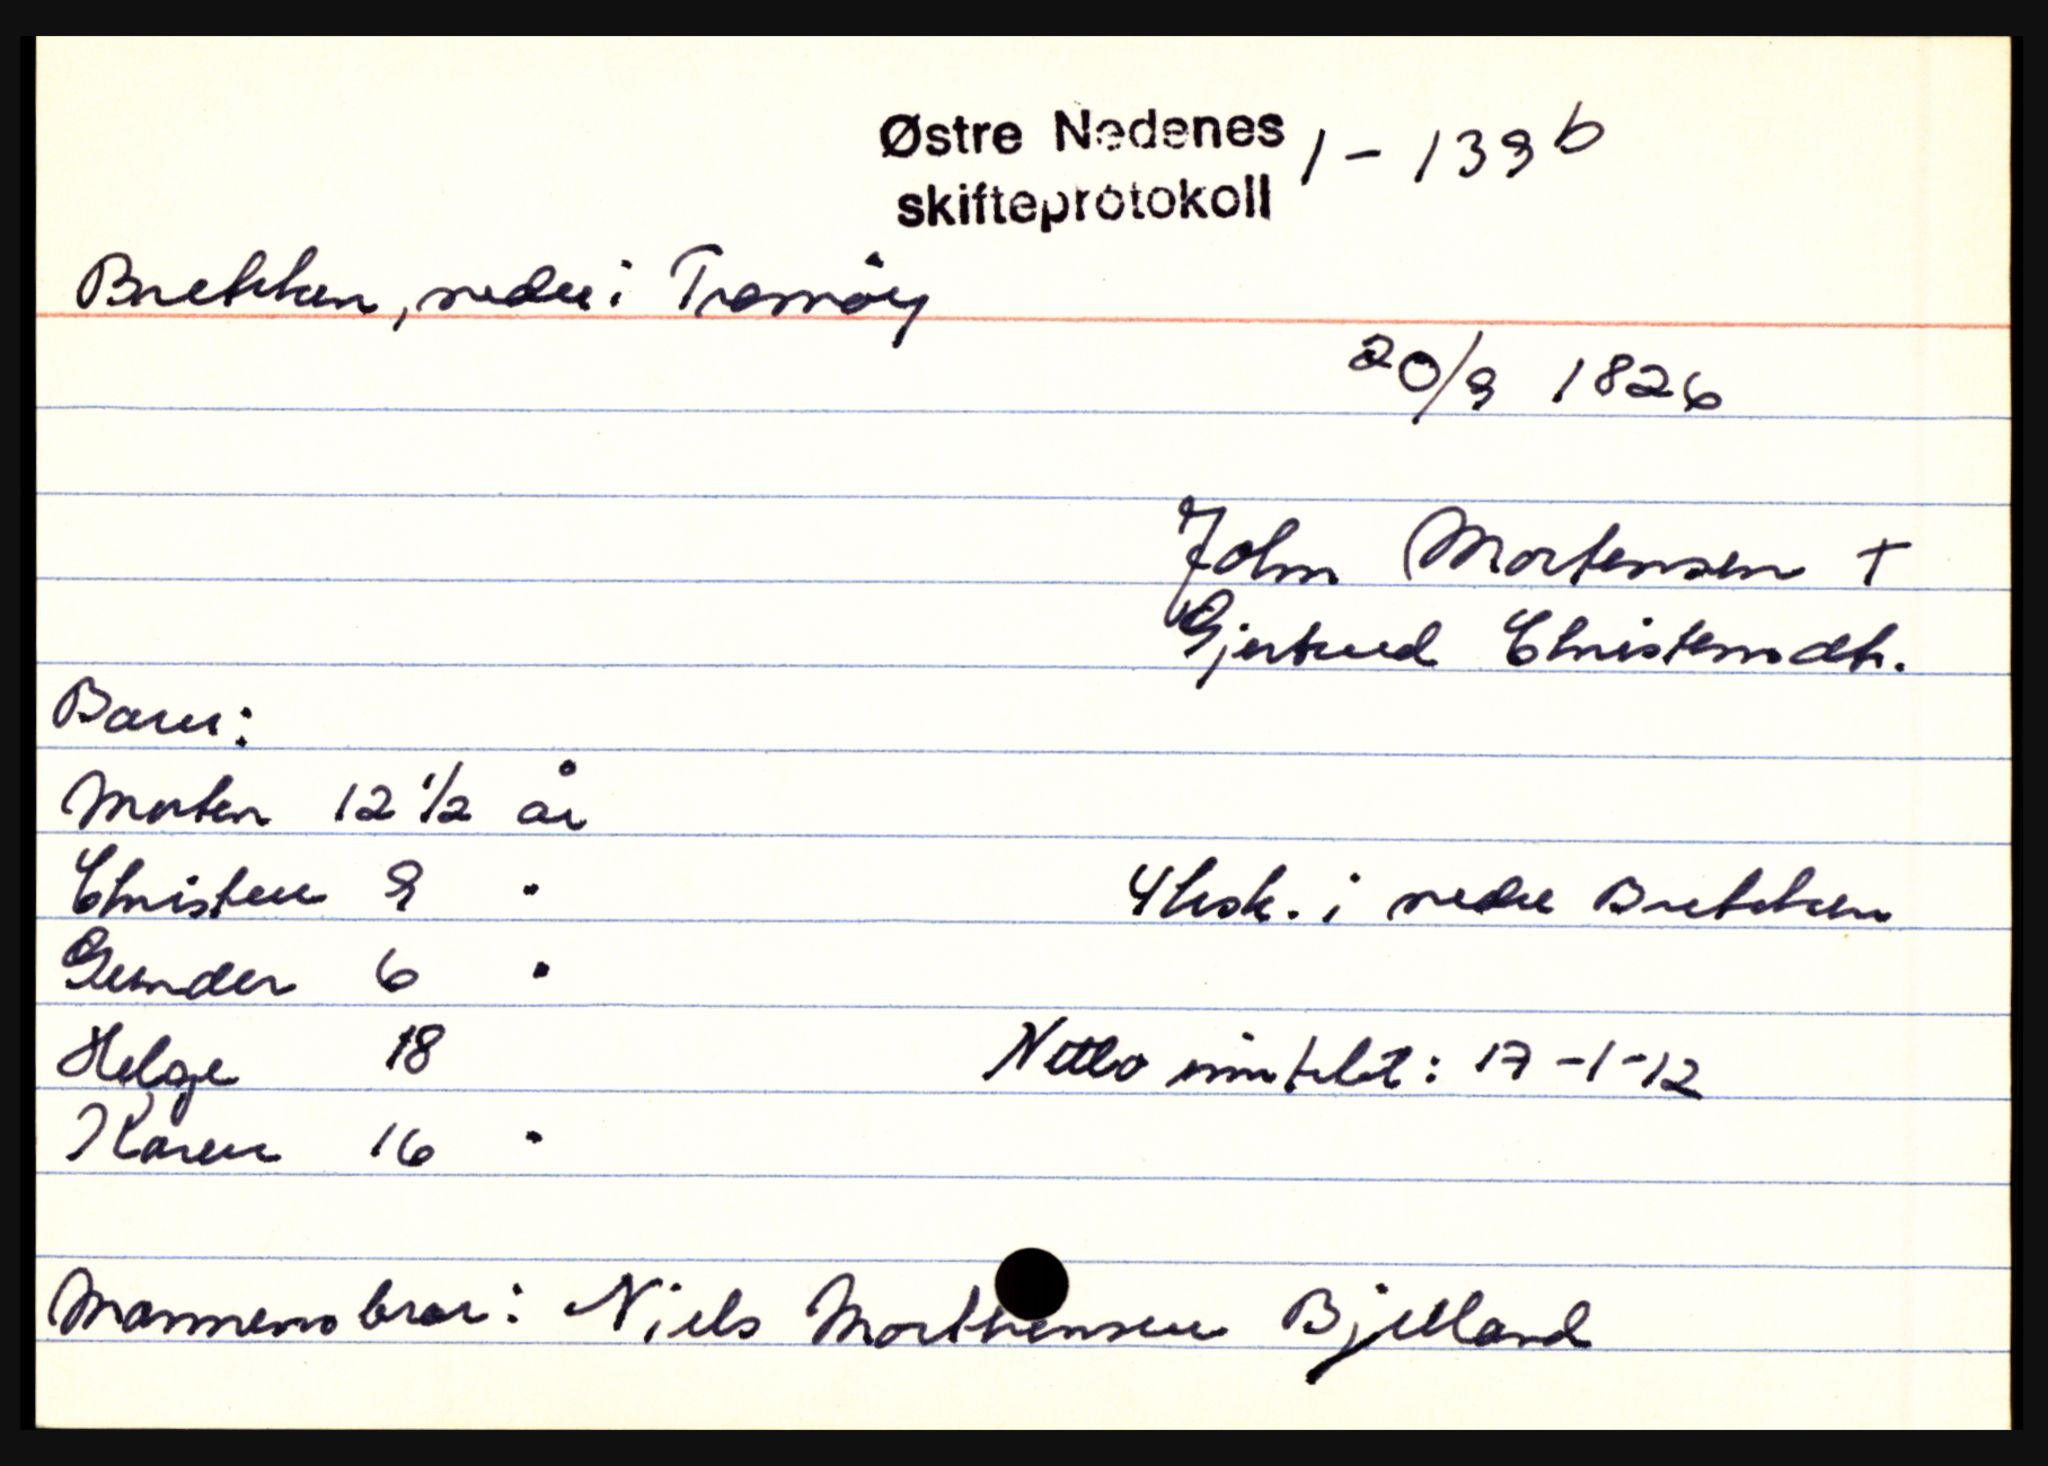 Østre Nedenes
skifteprotokoll 1 - 139 b
Brekken, nedre i Tromøy
20/9 1826
John Mortensen +
Gjertrud Christensdtr.
Barn:
Morten 12 1/2 år
Christen 9 "
4 hsk. i nedre Brekken
Gunder 6 "
Helge 18
Netto inntekt: 17 - 1 - 12
Karen 16 "
Mannens bror: Niels Morthensen Bjelland